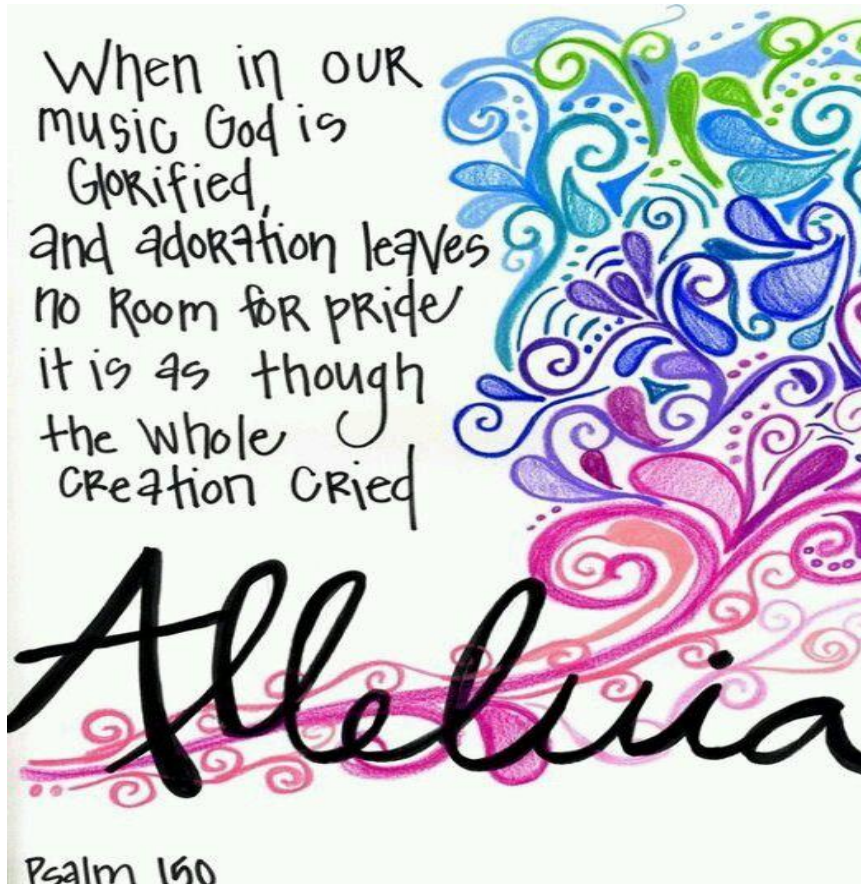 When in OUR
music God is
Glorified,
and adoration leaves
no Room for pride
it is as though
the whole
Creation Cried
Alleluia
Psalm 150